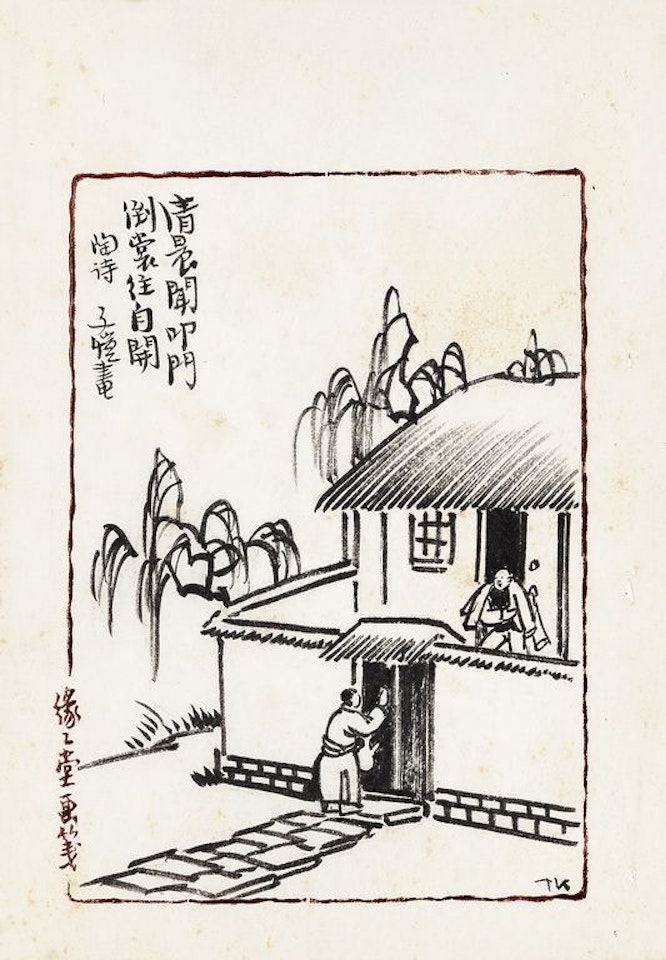 清晨聞叩門
倒裳往自開
陶诗 子愷畫
緣〻堂画笺
TK